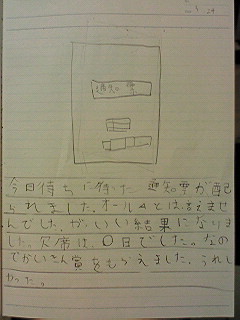 3.24
通知票
今日待ちに待った通知票が配
られました。オール4とは言えませ
んでした。が、いい結果になりま
した。欠席は、0日でした。なの
でかいきん賞をもらえました。うれし
かった。